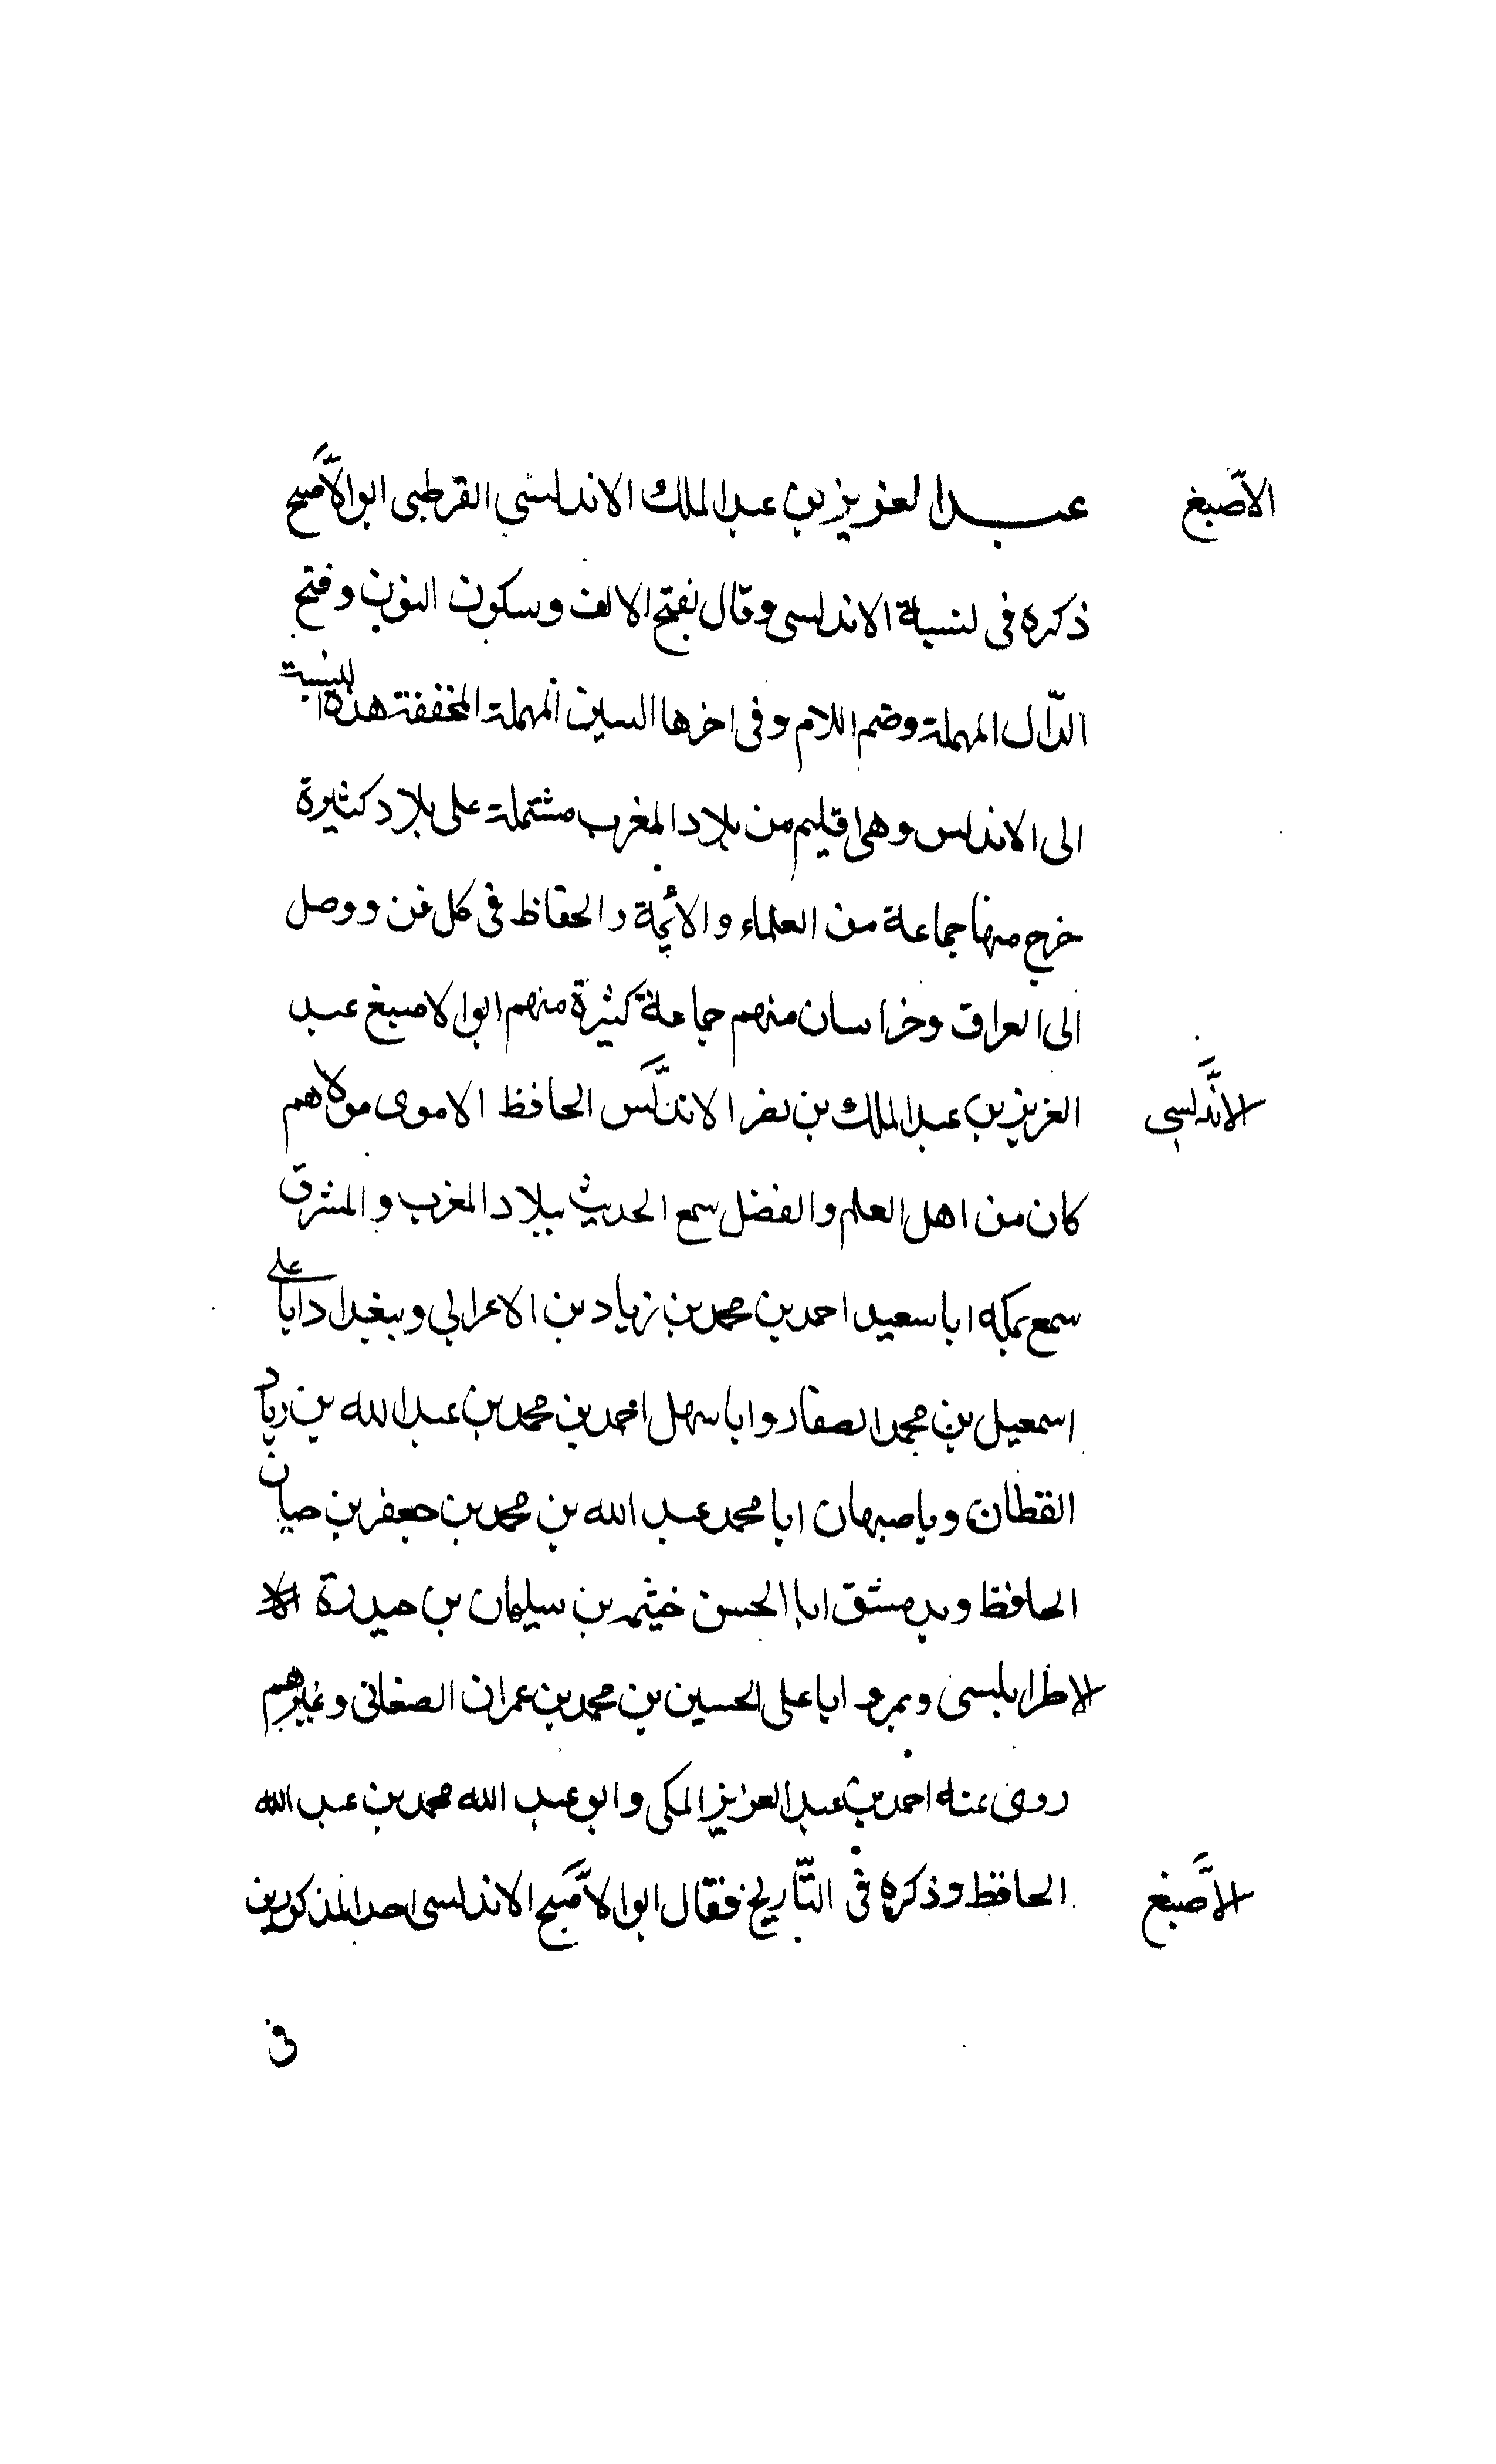 عبد العزيز بن عبد الملك الاندلسي القرطبى ابو الاصبح
الاصبغ
ذكره فى لنسبة الاندلسى وقال بفتح الالف وسكون النون وفتح
الدّال المهملة وضم اللام وفى اخرها السين المهملة المخففة هذه النسبة
الى الاندلس وهى اقليم من بلاد المغرب مشتملة على بلاد كثيرة
خرج منها جماعة من العلماء والائمة والحفاظ فى كل فن ووصل
الى العراق وخراسان منهم جماعة كثيرة منهم ابو الاصبغ عبد
العزيز بن عبد الملك بن نصر الاندلس الحافظ الاموى مولاهم
الاندلسي
كان من اهل العلم والفضل سمع الحديث ببلاد المغرب والمشرق
سمع بمكه ابا سعيد احمد بن محمد بن زياد بن الاعرابي وببغداد ابا على
اسمعيل بن محمد الصفار وابا سهل احمد بن محمد بن عبد الله بن زياد
القطان وباصبهان ابا محمد عبد الله بن محمد بن جعفر بن حيان
الحافظ وبدمشق ابا الحسن خيثمه بن سليمان بن حيدرة
الاطرابلسى وبمرو ابا على الحسين بن محمد بن عمران الصغانى وغيرهم
روى عنه احمد بن عبد العزيز المكى وابو عبد الله محمد بن عبد الله
الحافظ وذكره فى التّاريخ فقال ابو الاصبح الاندلسى احد المذكورين
الاصبغ
فى